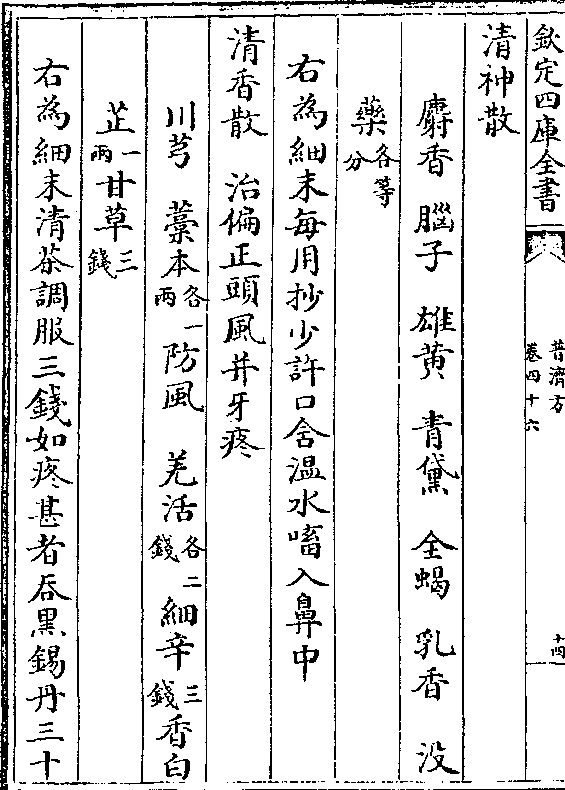 欽定四庫全書
普濟方
卷四十六
十四
清神散
麝香 腦子 雄黄 青黛 全蝎 乳香 没
藥各等分
右為細末每用抄少許口含温水㗜入鼻中
清香散 治偏正頭風并牙疼
川芎 藁本各一兩防風 羌活各二錢細辛三錢香白
芷一兩甘草三錢
右為細末清茶調服三錢如疼甚者吞黑錫丹三十